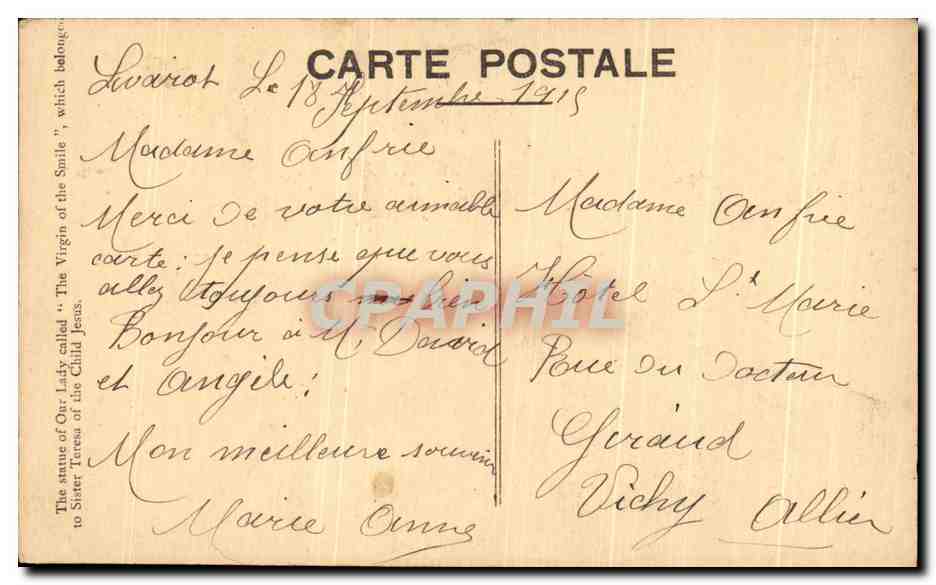 CARTE POSTALE
Livarot Le 18 Septembre 1915
Madame Anfrie
Merci de votre aimable
carte : je pense que vous
allez toujours bien
Bonjour à M. David
et Angèle :
Mon meilleure souvenir
Marie Anne
Madame Anfrie
Hôtel Ste Marie
Rue du Docteur
Giraud
Vichy Allier
The statue of Our Lady called " The Virgin of the Smile ", which belonged
to Sister Teresa of the Child Jesus.
CPAPHIL